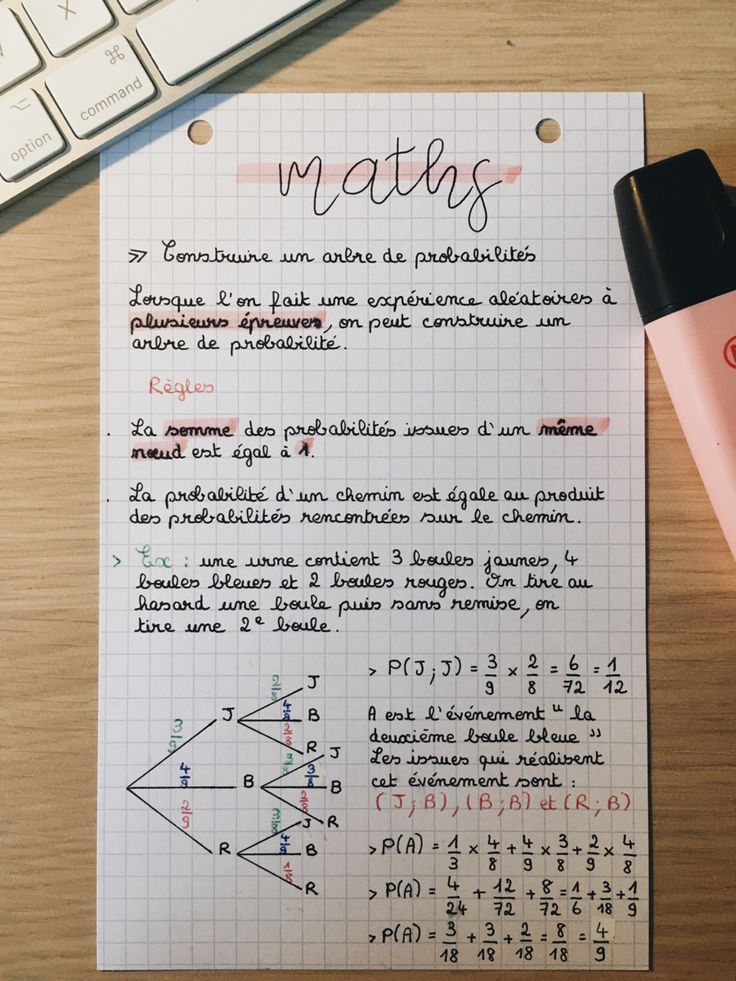 ⌘
command
option
X
maths
>> Construire un arbre de probabilités
Lorsque l'on fait une expérience aléatoires à
plusieurs épreuves, on peut construire un
arbre de probabilité.
Règles
. La somme des probabilités issues d'un même
nœud est égal à 1.
. La probabilité d'un chemin est égale au produit
des probabilités rencontrées sur le chemin.
> Ex : une urne contient 3 boules jaunes, 4
boules bleues et 2 boules rouges. On tire au
hasard une boule puis sans remise, on
tire une 2e boule.
3/9 J
2/8 J
4/8 B
2/8 R
4/9 B
3/8 J
3/8 B
2/8 R
2/9 R
3/8 J
4/8 B
1/8 R
> P(J;J) = 3/9 × 2/8 = 6/72 = 1/12
A est l'événement " la
deuxième boule bleue "
Les issues qui réalisent
cet événement sont :
(J;B), (B;B) et (R;B)
> P(A) = 1/3 × 4/8 + 4/9 × 3/8 + 2/9 × 4/8
> P(A) = 4/24 + 12/72 + 8/72 = 1/6 + 3/18 + 1/9
> P(A) = 3/18 + 3/18 + 2/18 = 8/18 = 4/9